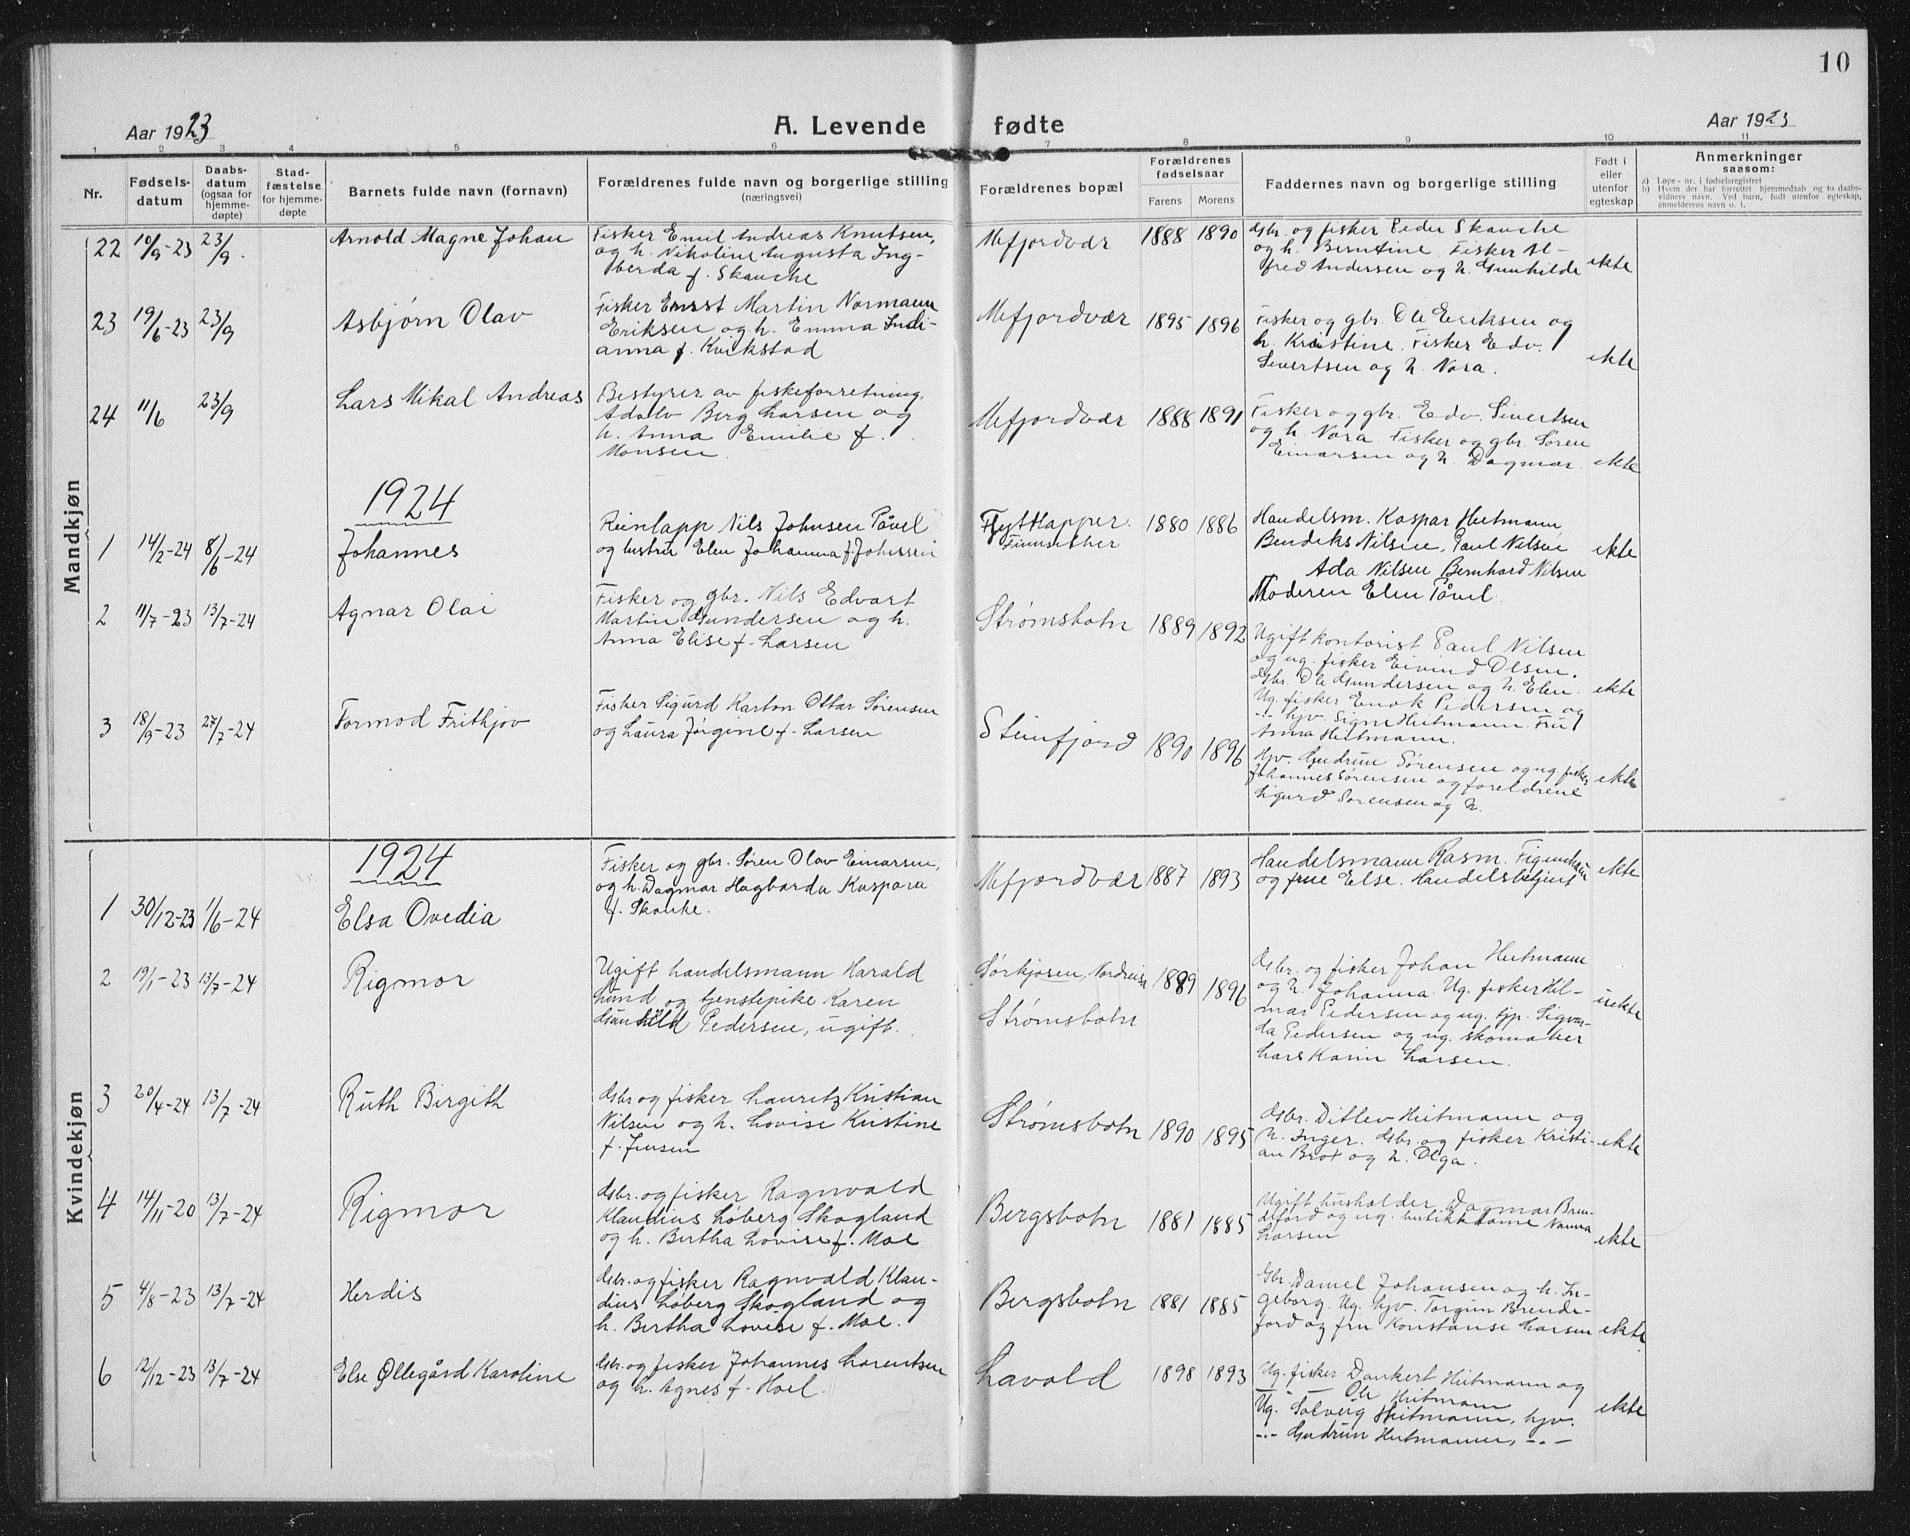 10
Aar 1923
A. Levende fødte
Aar 1923
1 2 3 4 5 6 7 8 9 10 11
Nr.
Fødsels-
datum
Daabs-
datum
(ogsaa for
hjemme-
døpte)
Stad-
fæstelse
for hjemme-
døpte
Barnets fulde navn (fornavn)
Forældrenes fulde navn og borgerlige stilling
(næringsvei)
Forældrenes bopæl
Forældrenes
fødselsaar
Farens Morens
Faddernes navn og borgerlige stilling
Født i
eller
utenfor
egteskap
Anmerkninger
saasom:
a) Løpe-nr. i fødselsregistret
b) Hvem der har forrettet hjemmedaab og to daabs-
vidners navn. Ved barn, født utenfor egteskap,
anmelderens navn o. l.
Mandkjøn
22 10/9-23 23/9. Arnold Magne Johan
Fisker Emil Andreas Knutsen,
og h. Nikoline Augusta Ing-
berda f. Skauche
Mefjordvær 1888 1890
Gbr. og fisker Peder Skauche
og h. Berntine. Fisker Al-
fred Andersen og h. Gunhilde
ekte
23 19/6-23 23/9 Asbjørn Olav
Fisker Ernst Martin Normann
Eriksen og h. Emma Indi-
anna f. Kvikstad
Mefjordvær 1895 1896
Fisker og gbr. Ole Eriksen og
h. Kristine. Fisker Edv.
Sivertsen og h. Nora.
ekte
24 11/6 23/9 Lars Mikal Andreas
Bestyrer av fiskeforretning,
Adolv Berg Larsen og
h. Anna Emilie f.
Monsen
Mefjordvær 1888 1891
Fisker og gbr. Edv. Sivertsen
og h. Nora Fisker og gbr. Søren
Einarsen og h. Dagmar.
ekte
1924
1 14/2-24 8/6-24 Johannes
Reinlapp Nils Johnsen Påvel
og hustru Elen Johanna f. Johnsen
Flyttlapper.
1880 1886
Handelsm. Kaspar Heitmann,
Bendiks Nilsen, Paul Nilsen
Ada Nilsen Bernhard Nilsen
Moderen Elen Påvel.
ekte
2 11/7-23 13/7-24 Agnar Olai
Fisker og gbr. Nils Edvart
Martin Gundersen og h.
Anna Elise f. Larsen
Strømsbotn 1889 1892
Ugift kontorist Paul Nilsen
og ug. fisker Eivind Olsen.
Gbr. Ole Gundersen og h. Elen.
Ug. fisker Enok Pedersen og
-"- hjv. Signe Heitmann. Fru
Anna Heitmann.
ekte
3 18/9-23 27/7-24 Tormod Frithjov
Fisker Sigurd Karton Ottar Sørensen
og Laura Jørgine f. Larsen
Steinfjord 1890 1896
Hjv. Gudrun Sørensen og ug. fisker
Johannes Sørensen og foreldrene
Sigurd Sørensen og h.
ekte
Kvindekjøn
1924
1 30/12-23 1/6-24 Elsa Ovedia
Fisker og gbr. Søren Olav Einarsen,
og h. Dagmar Hagbarda Kaspara
f. Skauke.
Mefjordvær 1887 1893
Handelsmann Rasm.
og frue Else. Handelsbetjent
ekte
2 19/1-23 13/7-24 Rigmor
Ugift handelsmann Harald
Lund og tjenstepike Karen
Gunhild Pedersen, ugift.
Sørkjosen, Nordreisa
Strømsbotn
1889 1896
Gbr. og fisker Johan Heitmann
og h. Johanna. Ug. fisker Hil-
mar Pedersen og ug. tjp. Sigvar-
da Pedersen og ug. skomaker
Lars Karin Larsen.
uekte
3 20/4-24 13/7-24 Ruth Birgith
Gbr og fisker Lauritz Kristian
Nilsen og h. Lovise Kristine
f. Jensen
Strømsbotn 1890 1895
Gbr. Ditlev Heitmann og
h. Inger. Gbr. og fisker Kristi-
an Brox og h. Olga.
ekte
4 14/11-20 13/7-24 Rigmor
Gbr. og fisker Ragnvald
Klaudius Løberg Skogland
og h. Bertha Lovise f. Moe
Bergsbotn 1881 1885
Ugift husholder. Dagmar Bren-
deford og ug. butikkdame Nanna
Larsen
ekte
5 4/8-23 13/7-24 Herdis
Gbr. og fisker Ragnvald Klau-
dius Løberg Skogland og
h. Bertha Lovise f. Moe.
Bergsbotn 1881 1885
Gbr. Daniel Johansen og h. In-
geborg. Ug. hjv. Torgun Brende-
ford og fru Konstanse Larsen
ekte
6 12/12-23 13/7-24 Else Øllegård Karoline
Gbr. og fisker Johannes Lorentsen
og h. Agnes f. Hoel
Lavold 1898 1893
Ug. fisker Dankert Heitmann og
Ug. -"- Ole Heitmann
Ug. Solveig Heitmann, hjv.
-"- Gudrun Heitmann, -"-
ekte